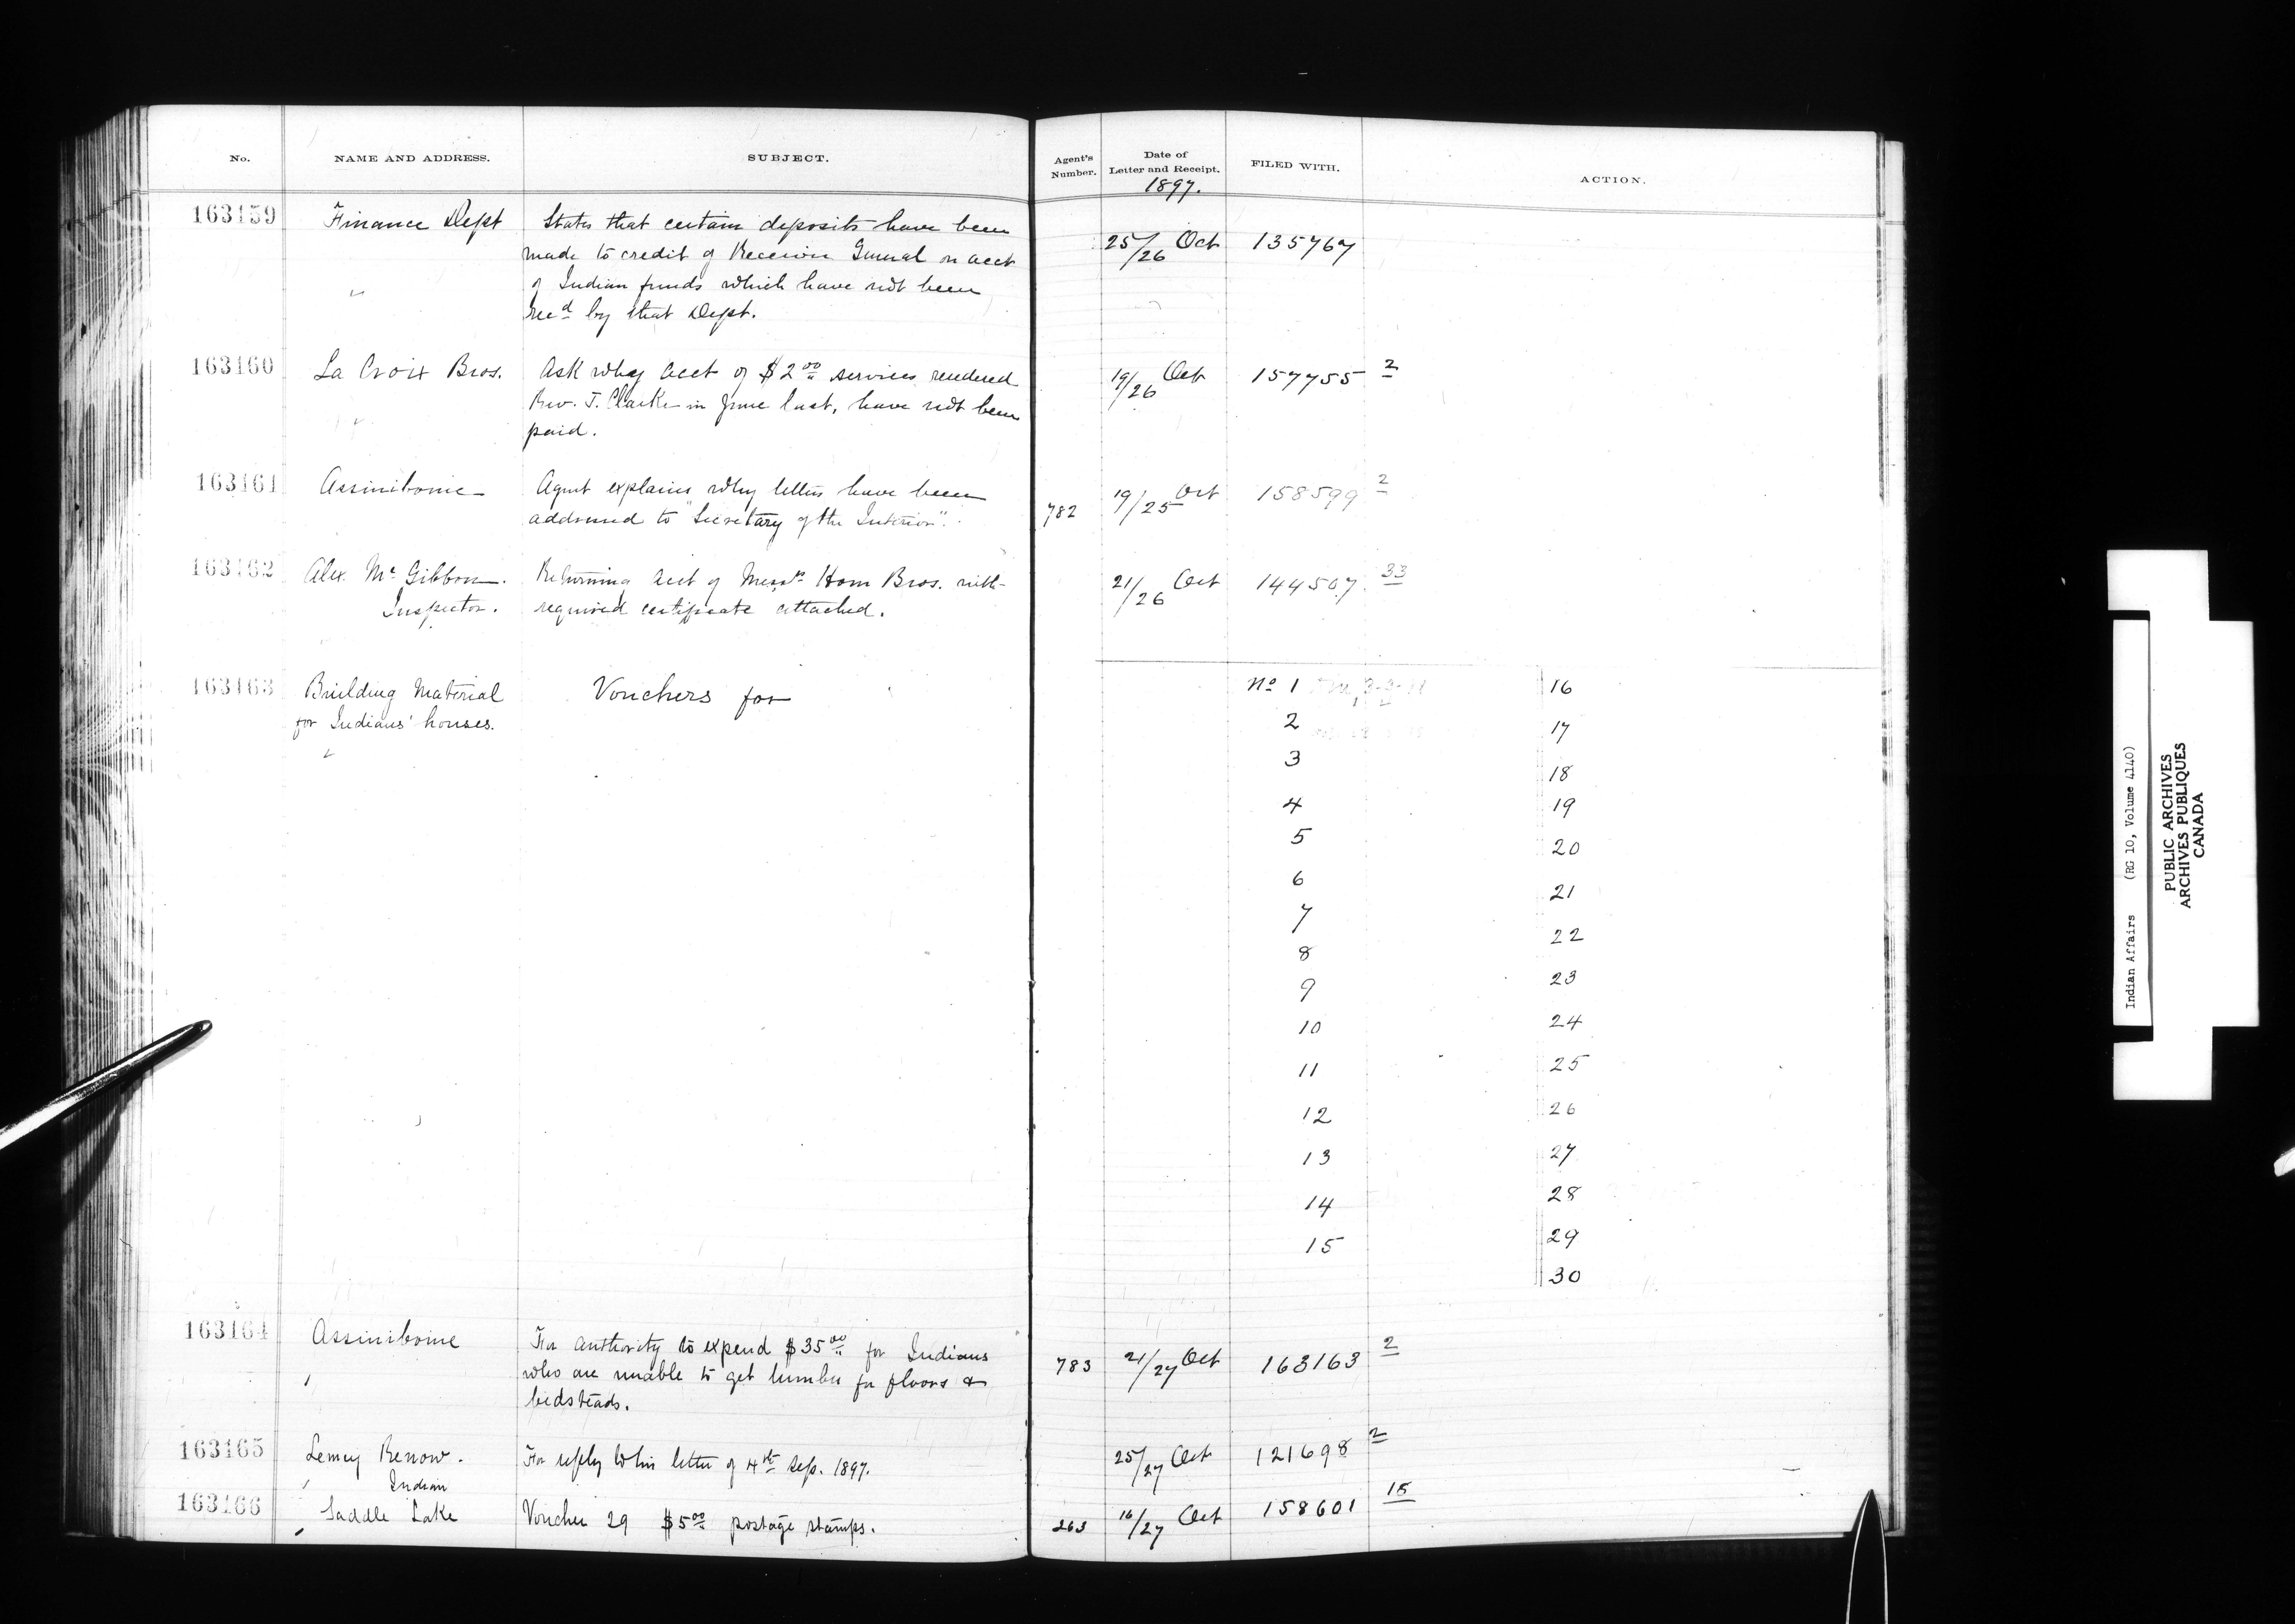 No. NAME AND ADDRESS. SUBJECT. Agent's Number. Date of Letter and Receipt. FILED WITH. ACTION.
1897.
163159 Finance Dept States that certain deposits have been
made to credit of Receiver General on acct 25/26 Oct 135767
of Indian funds which have not been
recd by that Dept.
163160 La Croix Bros. Ask why acct of $2 00 services rendered 19/26 Oct 157755 2
Rev. J. Clarke in June last, have not been
paid.
163161 Assiniboine Agent explains why letters have been 19/25 Oct 158599 2
addressed to "Secretary of the Interior". 782
163162 Alex. Mc Gibbon. Returning acct of Messrs Hom Bros. with 21/26 Oct 144507. 33
Inspector. required certificate attached.
163163 Building Material Vouchers for No 1 16
for Indians' houses. 2 17
3 18
4 19
5 20
6 21
7 22
8 23
9 24
10 25
11 26
12 27
13 28
14 29
15 30
163164 Assiniboine For authority to expend $35 00 for Indians 783 21/27 Oct 163163 2
who are unable to get lumber for floors &
bedsteads.
163165 Renow. For reply to his letter of 4th Sep. 1897. 25/27 Oct 121698 2
Indian
163166 Saddle Lake Voucher 29 $5 00 postage stamps. 263 16/27 Oct 158601 15
Indian Affairs (RG 10, Volume 4140)
PUBLIC ARCHIVES
ARCHIVES PUBLIQUES
CANADA